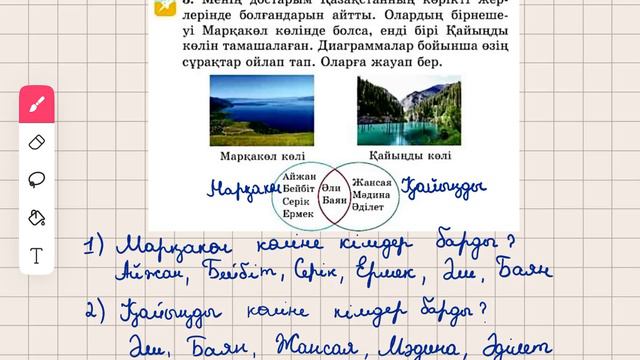 3. Менің достарым Қазақстанның көрікті жер-
лерінде болғандарын айтты. Олардың бірнеше-
уі Марқакөл көлінде болса, енді бірі Қайыңды
көлін тамашалаған. Диаграммалар бойынша өзің
сұрақтар ойлап тап. Оларға жауап бер.
Марқакөл көлі
Қайыңды көлі
Марқакөл
Айжан
Бейбіт
Серік
Ермек
Әли
Баян
Жансая
Мәдина
Әділет
Қайыңды
1) Марқакөл көліне кімдер барды?
Айжан, Бейбіт, Серік, Ермек, Әли, Баян
2) Қайыңды көліне кімдер барды?
Әли, Баян, Жансая, Мәдина, Әділет
T